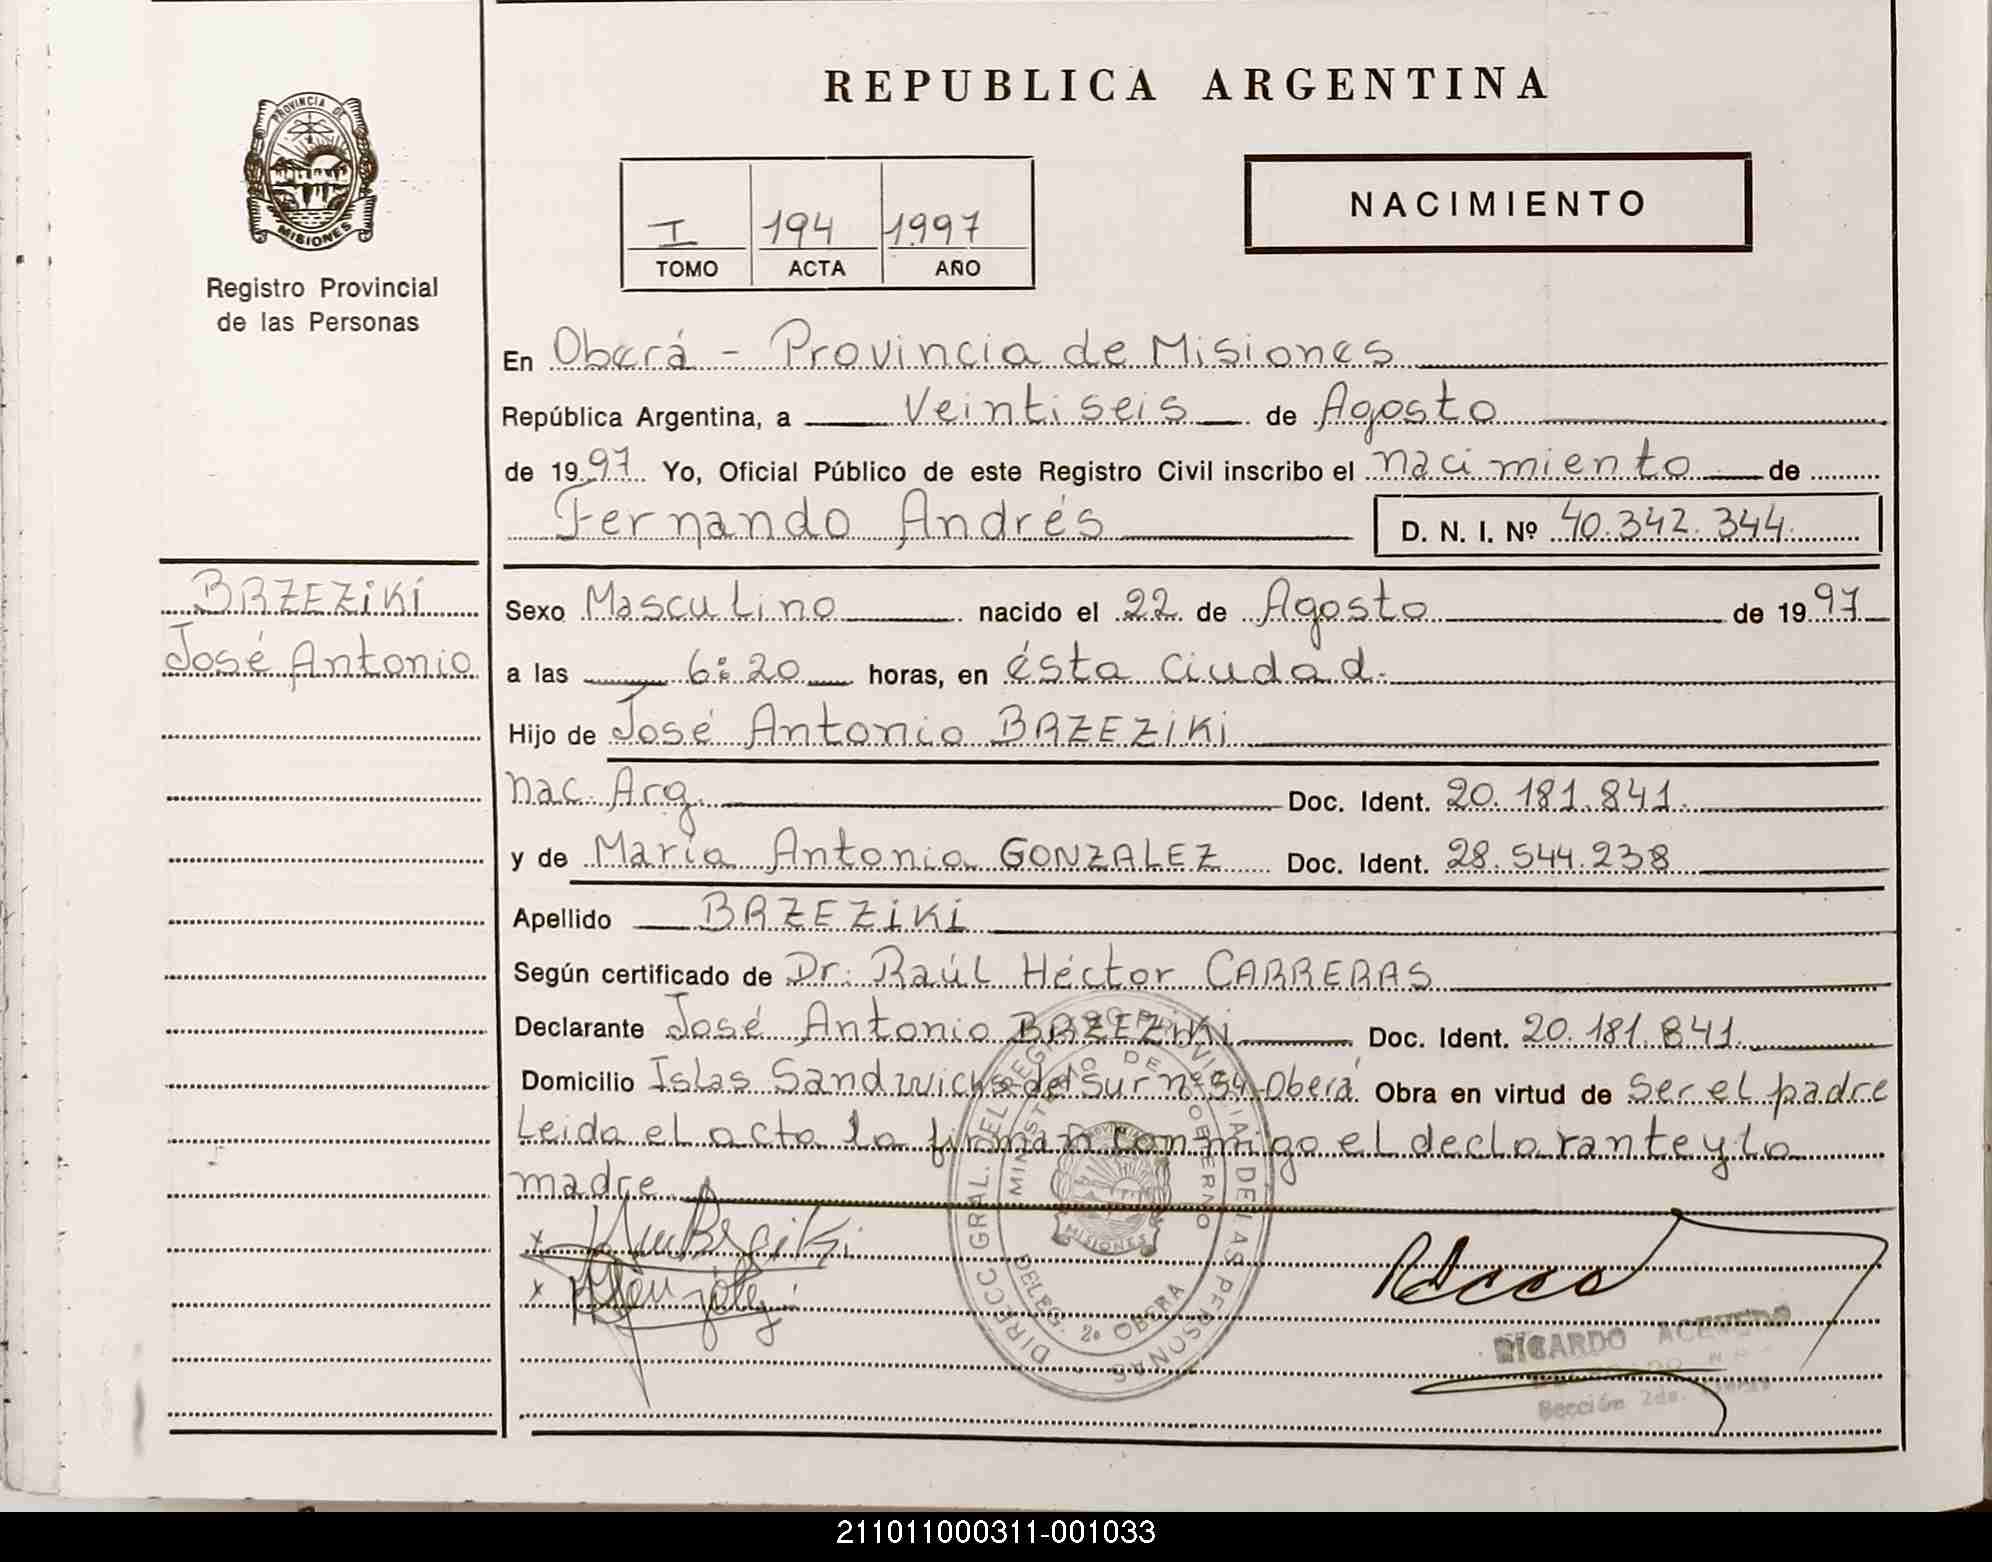 REPUBLICA ARGENTINA
PROVINCIA DE
MISIONES
Registro Provincial
de las Personas
I 194 1997
TOMO ACTA AÑO
NACIMIENTO
En Oberá - Provincia de Misiones
República Argentina, a Veintiseis de Agosto
de 1997 Yo, Oficial Público de este Registro Civil inscribo el nacimiento de
Fernando Andrés D. N. I. Nº 40.342.344.
BRZEZiKi
José Antonio
Sexo Masculino nacido el 22 de Agosto de 1997
a las 6:20 horas, en ésta ciudad.
Hijo de José Antonio BRZEZiKi
nac. Arg. Doc. Ident. 20.181.841.
y de María Antonia GONZALEZ Doc. Ident. 28.544.238
Apellido BRZEZiKi
Según certificado de Dr. Raúl Héctor CARRERAS
Declarante José Antonio BRZEZiKi Doc. Ident. 20.181.841.
Domicilio Islas Sandwichs del Sur nº 54-Oberá Obra en virtud de Ser el padre
Leida el acta la firman conmigo el declarante y la
madre.
DIRECC. GRAL. DEL REGISTRO PROVINCIAL DE LAS PERSONAS
MINISTERIO DE GOBIERNO
MISIONES
DELEG. 2º OBERA
RICARDO ACEVEDO
Sección 2da.
211011000311-001033